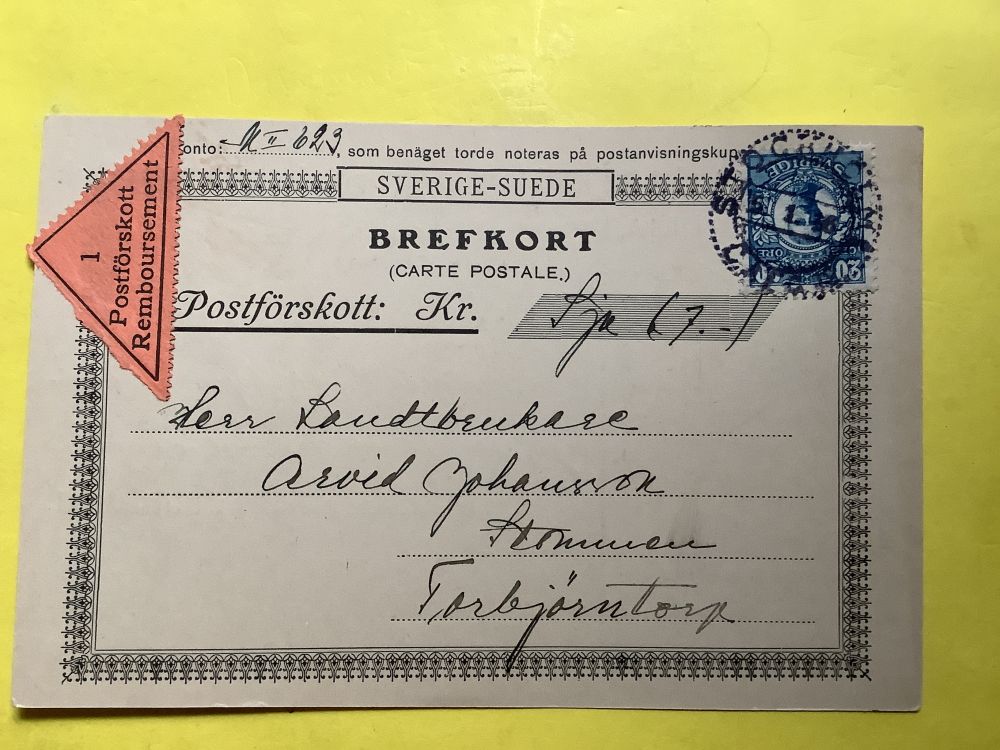 onto: N II 623, som benäget torde noteras på postanvisningskup
SVERIGE-SUEDE
BREFKORT
(CARTE POSTALE.)
1
Postförskott
Remboursement
Postförskott: Kr. Sju (7.-)
Herr Landtbrukare
Arvid Johansson
Stommen
Torbjörntorp